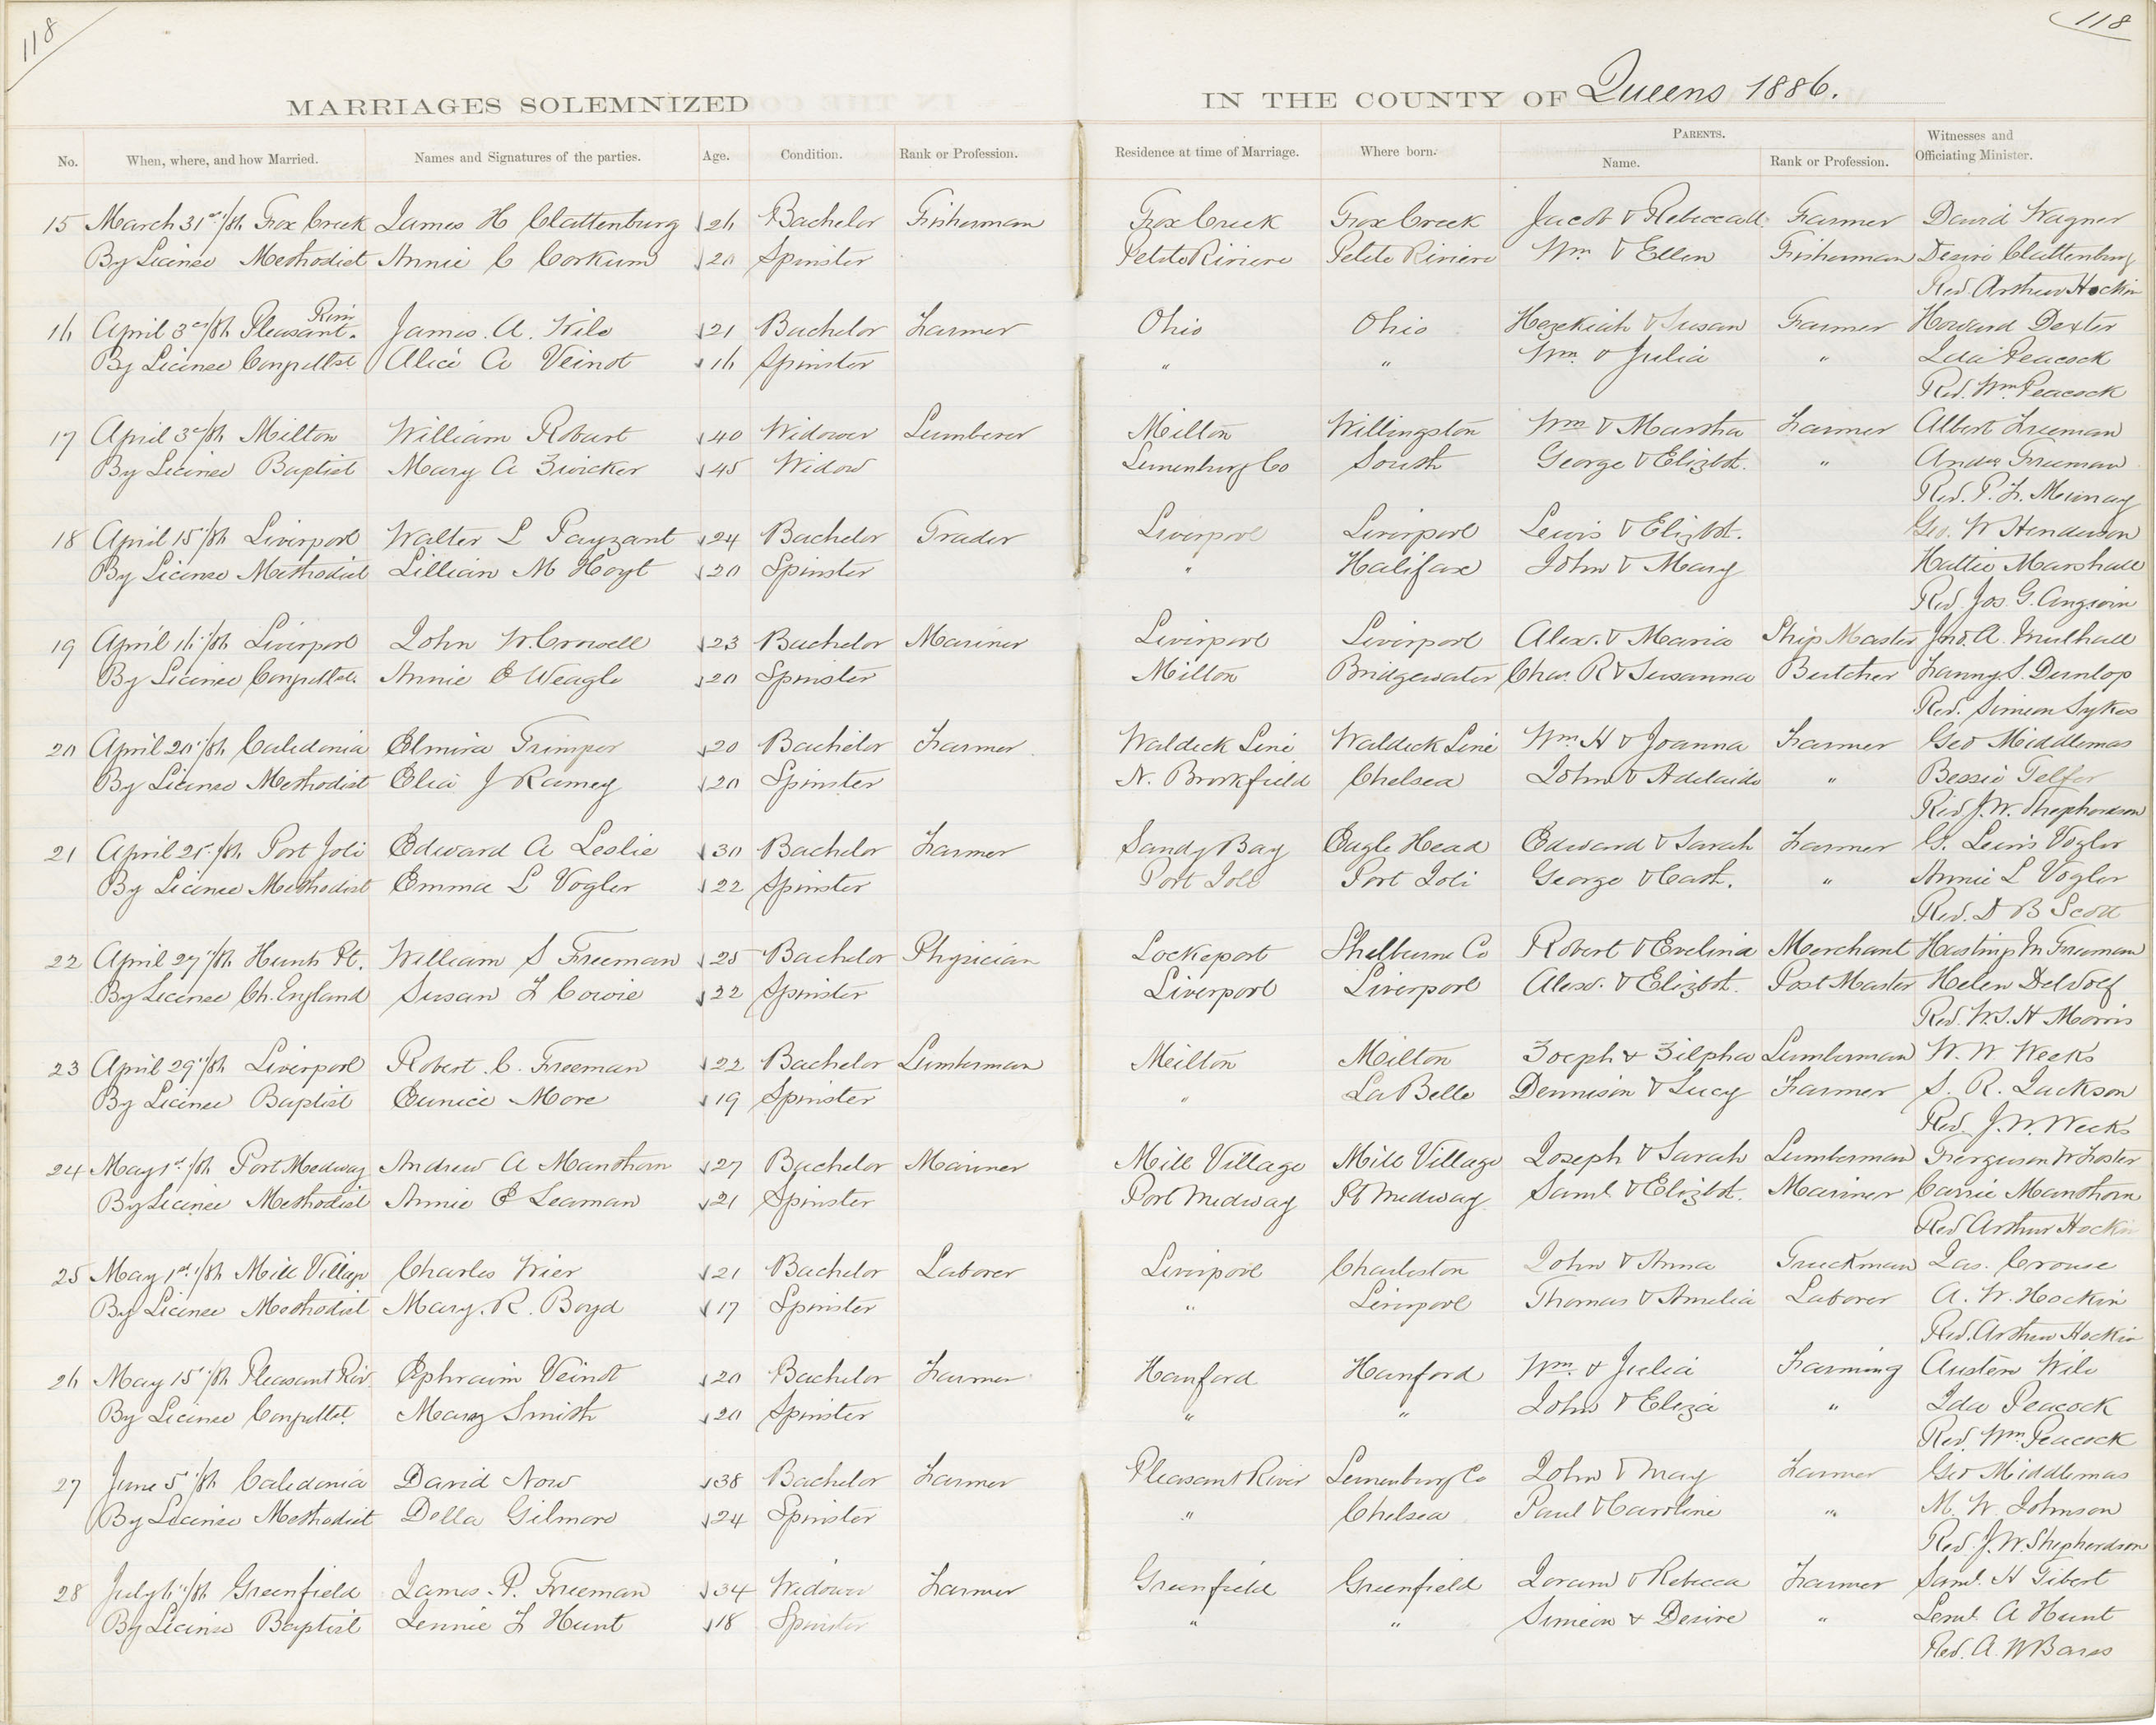 118
118
MARRIAGES SOLEMNIZED IN THE COUNTY OF Queens 1886.
No. When, where, and how Married. Names and Signatures of the parties. Age. Condition. Rank or Profession. Residence at time of Marriage. Where born. PARENTS. Name. Rank or Profession. Witnesses and Officiating Minister.
15 March 31st/86 Fox Creek James H Clattenburg 26 Bachelor Fisherman Fox Creek Fox Creek Jacob & Rebecca Farmer David Wagner
By Licinse Methodist Annie C Corkum 20 Spinster Petite Riviere Petite Riviere Wm & Ellen Fisherman Desire Clattenburg
Rev. Arthur Hockin
16 April 3rd/86 Pleasant Riv James. A. Wile 21 Bachelor Farmer Ohio Ohio Hezekiah & Susan Farmer Howard Dexter
By License Alice A Veinot 16 Spinster " " Wm & Julia " Ida Peacock
Rev. Wm Peacock
17 April 3rd/86 Milton William Robart 40 Widower Lumberer Milton Willingston Wm & Martha Farmer Albert Freeman
By License Baptist Mary A Zwicker 45 Widow Lunenburg Co South George & Elizbt. " Freeman
Rev. P. F. Murray
18 April 15/86 Liverpool Walter L Payzant 24 Bachelor Trader Liverpool Liverpool Lewis & Elizbt. Geo. W Henderson
By License Methodist Lillian M Hoyt 20 Spinster " Halifax John & Mary Hattie Marshall
Rev. Jos. G. Angwin
19 April 16/86 Liverpool John W. Crowell 23 Bachelor Mariner Liverpool Liverpool Alex. & Maria Ship Master Jno. A. Mulhall
By License Annie E Weagle 20 Spinster Milton Bridgewater Chas. R & Susanna Butcher Fanny S. Dunlop
Rev. Simeon Sykes
20 April 20/86 Caledonia Elmira Trimper 20 Bachelor Farmer Waldeck Line Waldeck Line Wm H & Joanna Farmer Geo Middlemas
By License Methodist Elia J Ramey 20 Spinster N. Brookfield Chelsea John & Adelaide " Bessie Telfer
Rev J. W. Shepherdson
21 April 21/86 Port Joli Edward A Leslie 30 Bachelor Farmer Sandy Bay Eagle Head Edward & Sarah Farmer G. Lewis Vogler
By License Methodist Emma L Vogler 22 Spinster Port Joli Port Joli George & Cath. " Annie L Vogler
Rev. D B Scott
22 April 27/86 Hunts Pt. William S Freeman 25 Bachelor Physician Lockeport Shelburne Co Robert & Evelina Merchant Hastings M Freeman
By License Ch. England Susan F Cowie 22 Spinster Liverpool Liverpool Alexr. & Elizbt. Post Master Helen DeWolf
Rev. W. S. H Morris
23 April 29/86 Liverpool Robert. C. Freeman 22 Bachelor Lumberman Milton Milton Zoeph & Zilpha Lumberman W. W. Weeks
By License Baptist Eunice More 19 Spinster " La Belle Dennison & Lucy Farmer S. R. Jackson
Rev. J. W. Weeks
24 May 1st/86 Port Medway Andrew A Manthorn 27 Bachelor Mariner Mill Village Mill Village Joseph & Sarah Lumberman Ferguson W Foster
By License Methodist Annie E Leaman 21 Spinster Port Medway Pt Medway Saml. & Elizbt. Mariner Carrie Manthorn
Rev Arthur Hockin
25 May 1st/86 Mill Village Charles Wier 21 Bachelor Laborer Liverpool Charleston John & Anna Truckman Jas. Crouse
By License Methodist Mary. R. Boyd 17 Spinster " Liverpool Thomas & Amelia Laborer A. W. Hockin
Rev. Arthur Hockin
26 May 15/86 Pleasant Riv. Ephraim Veinot 20 Bachelor Farmer Hanford Hanford Wm. & Julia Farming Austen Wile
By License Mary Smith 20 Spinster " " John & Eliza " Ida Peacock
Rev. Wm. Peacock
27 June 5/86 Caledonia David Now 38 Bachelor Farmer Pleasant River Lunenburg Co John & May Farmer Geo Middlemas
By License Methodist Della Gilmore 24 Spinster " Chelsea Paul & Caroline " M. W. Johnson
Rev. J. W. Shepherdson
28 July 6/86 Greenfield James. P. Freeman 34 Widower Farmer Greenfield Greenfield Zoram & Rebecca Farmer Saml. H Tibert
By License Baptist Jennie F Hunt 18 Spinster " " Simeon & Desire " Leml. A Hunt
Rev. A. W Barss